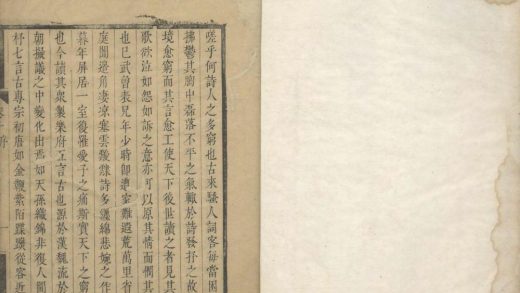 嗟乎何詩人之多窮也古來騷人詞客每當困
拂鬱其胸中磊落不平之氣輒於詩發抒之故
境愈窮而其言愈工使天下後世讀之者見其
歌欲泣如怨如訴之意亦可以原其情而憫其
也已武曾表兄年少時即遭室難遐荒萬里省
庭闈邊角凄凉塞雲靉靆詩多纏綿悲婉之作
暮年屏居一室復罹愛子之痛斯實天下之窮
也今讀其衆製樂府五言古也源於漢魏流於
朝撥之中變化出焉如天孫織錦非復人間
杼七言古專宗初唐如金鞭紫陌蹀躞從容近
序